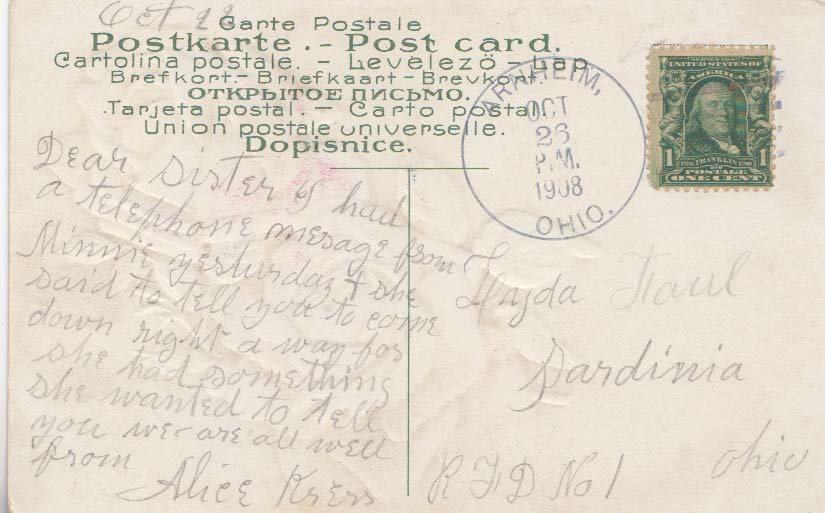 Oct 22
Carte Postale
Postkarte. - Post card.
Cartolina postale. - Levelezö - Lap.
Brefkort.- Briefkaart - Brevkort.
ОТКРЫТОЕ ПИСЬМО.
Tarjeta postal. - Carto postal.
Union postale universelle.
Dopisnice.
ARNHEIM,
OCT
26
P.M.
1908
OHIO.
SERIES 1902
UNITED STATES OF
AMERICA
1706 FRANKLIN 1790
1 1
POSTAGE
ONE CENT
Dear Sister I had
a telephone mesage from
Minnie yesturday & she
said to tell you to come
down right a way for
she had something
she wanted to tell
you we are all well
from
Alice Kress
Lyda Faul
Sardinia
R F D No 1
Ohio